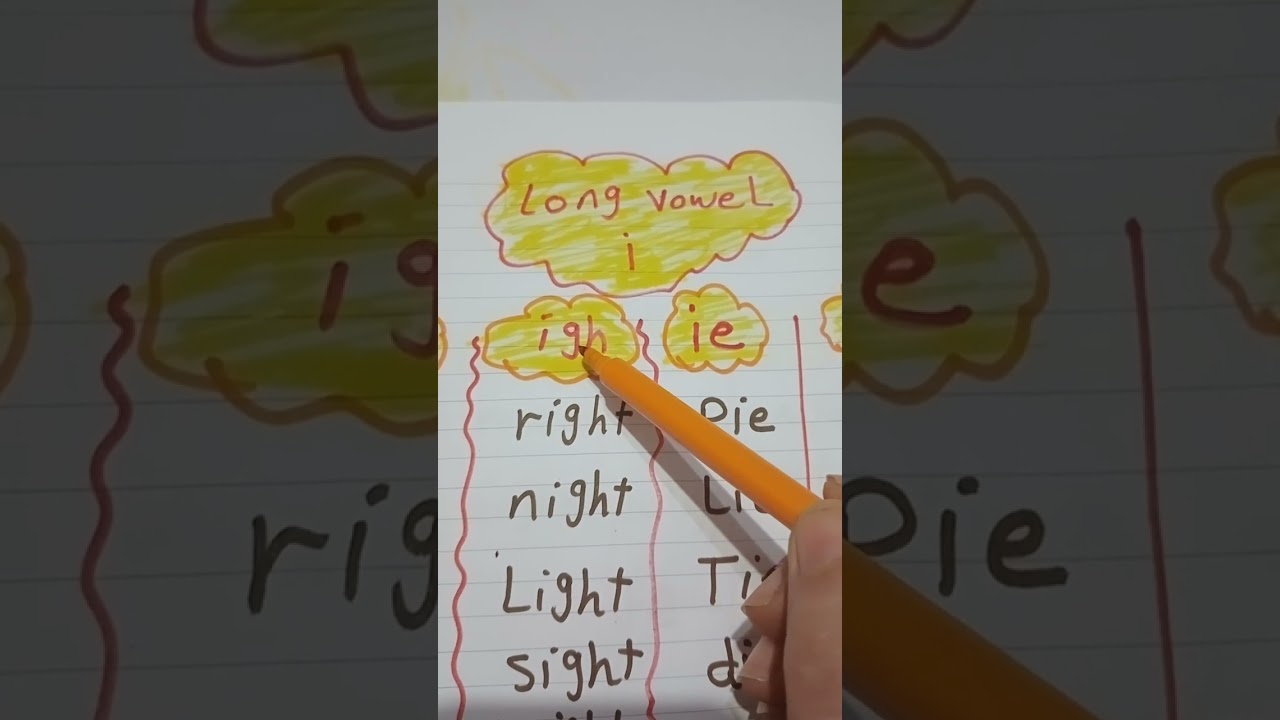 Long vowel
i
igh ie
right Pie
night
Light
sight